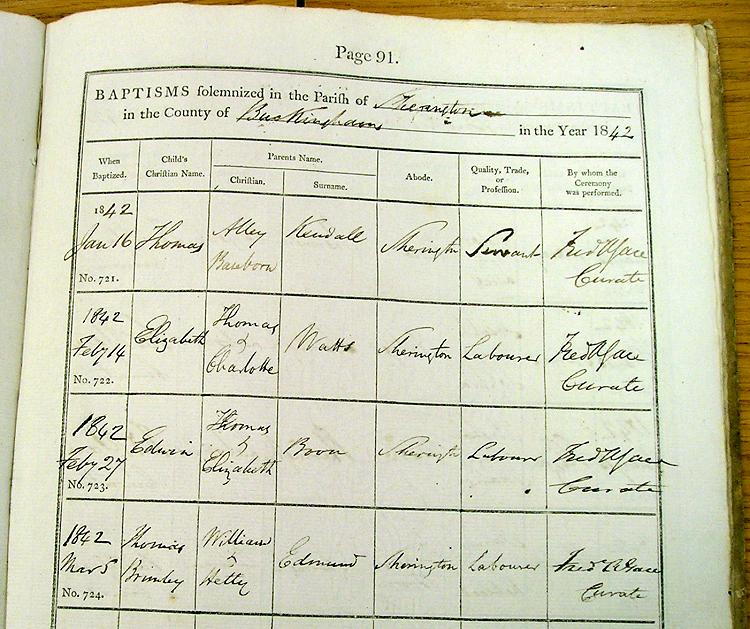 Page 91.
BAPTISMS solemnized in the Parish of Sherington
in the County of Buckingham in the Year 1842
When Baptized. Child's Christian Name. Parents Name. Abode. Quality, Trade, or Profession. By whom the Ceremony was performed.
Christian. Surname.
1842
Jan 16 Thomas Alley Kendall Sherington Servant Fred A Gace
Baseborn Curate
No. 721.
1842 Thomas
Feby 14 Elizabeth & Watts Sherington Labourer Fred A Gace
Charlotte Curate
No. 722.
1842 Thomas
Feby 27 Edwin & Sherington Labourer Fred A Gace
Elizabeth Curate
No. 723.
1842 Thomas William
Mar 5 Brimley & Edmund Sherington Labourer Fred A Gace
Hetty Curate
No. 724.